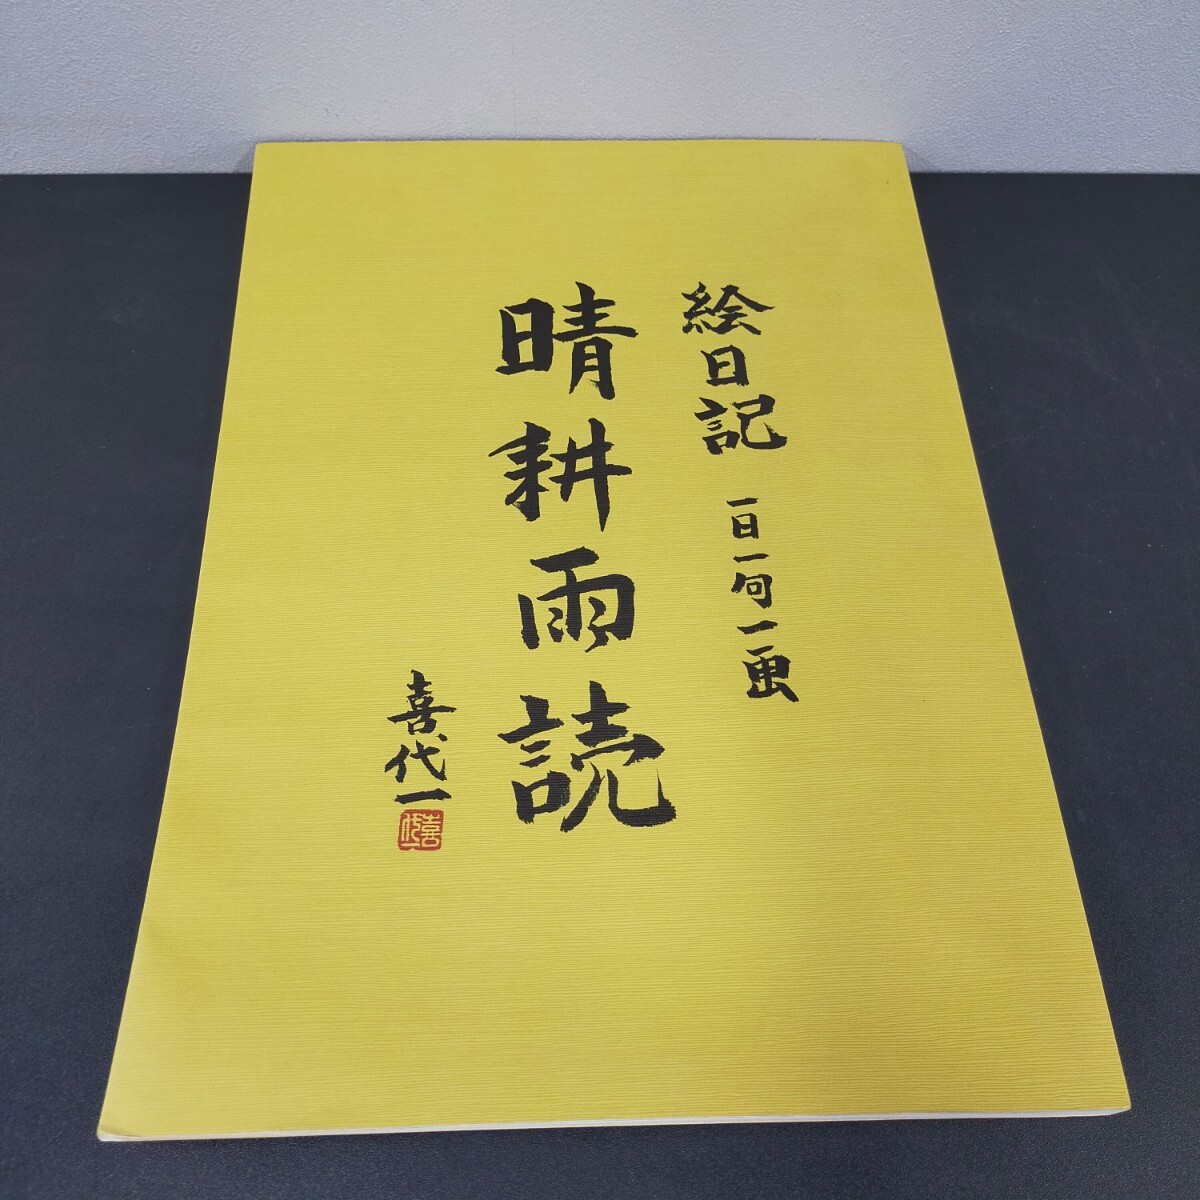 絵日記 一日一句一画
晴耕雨読
喜代一
喜代一